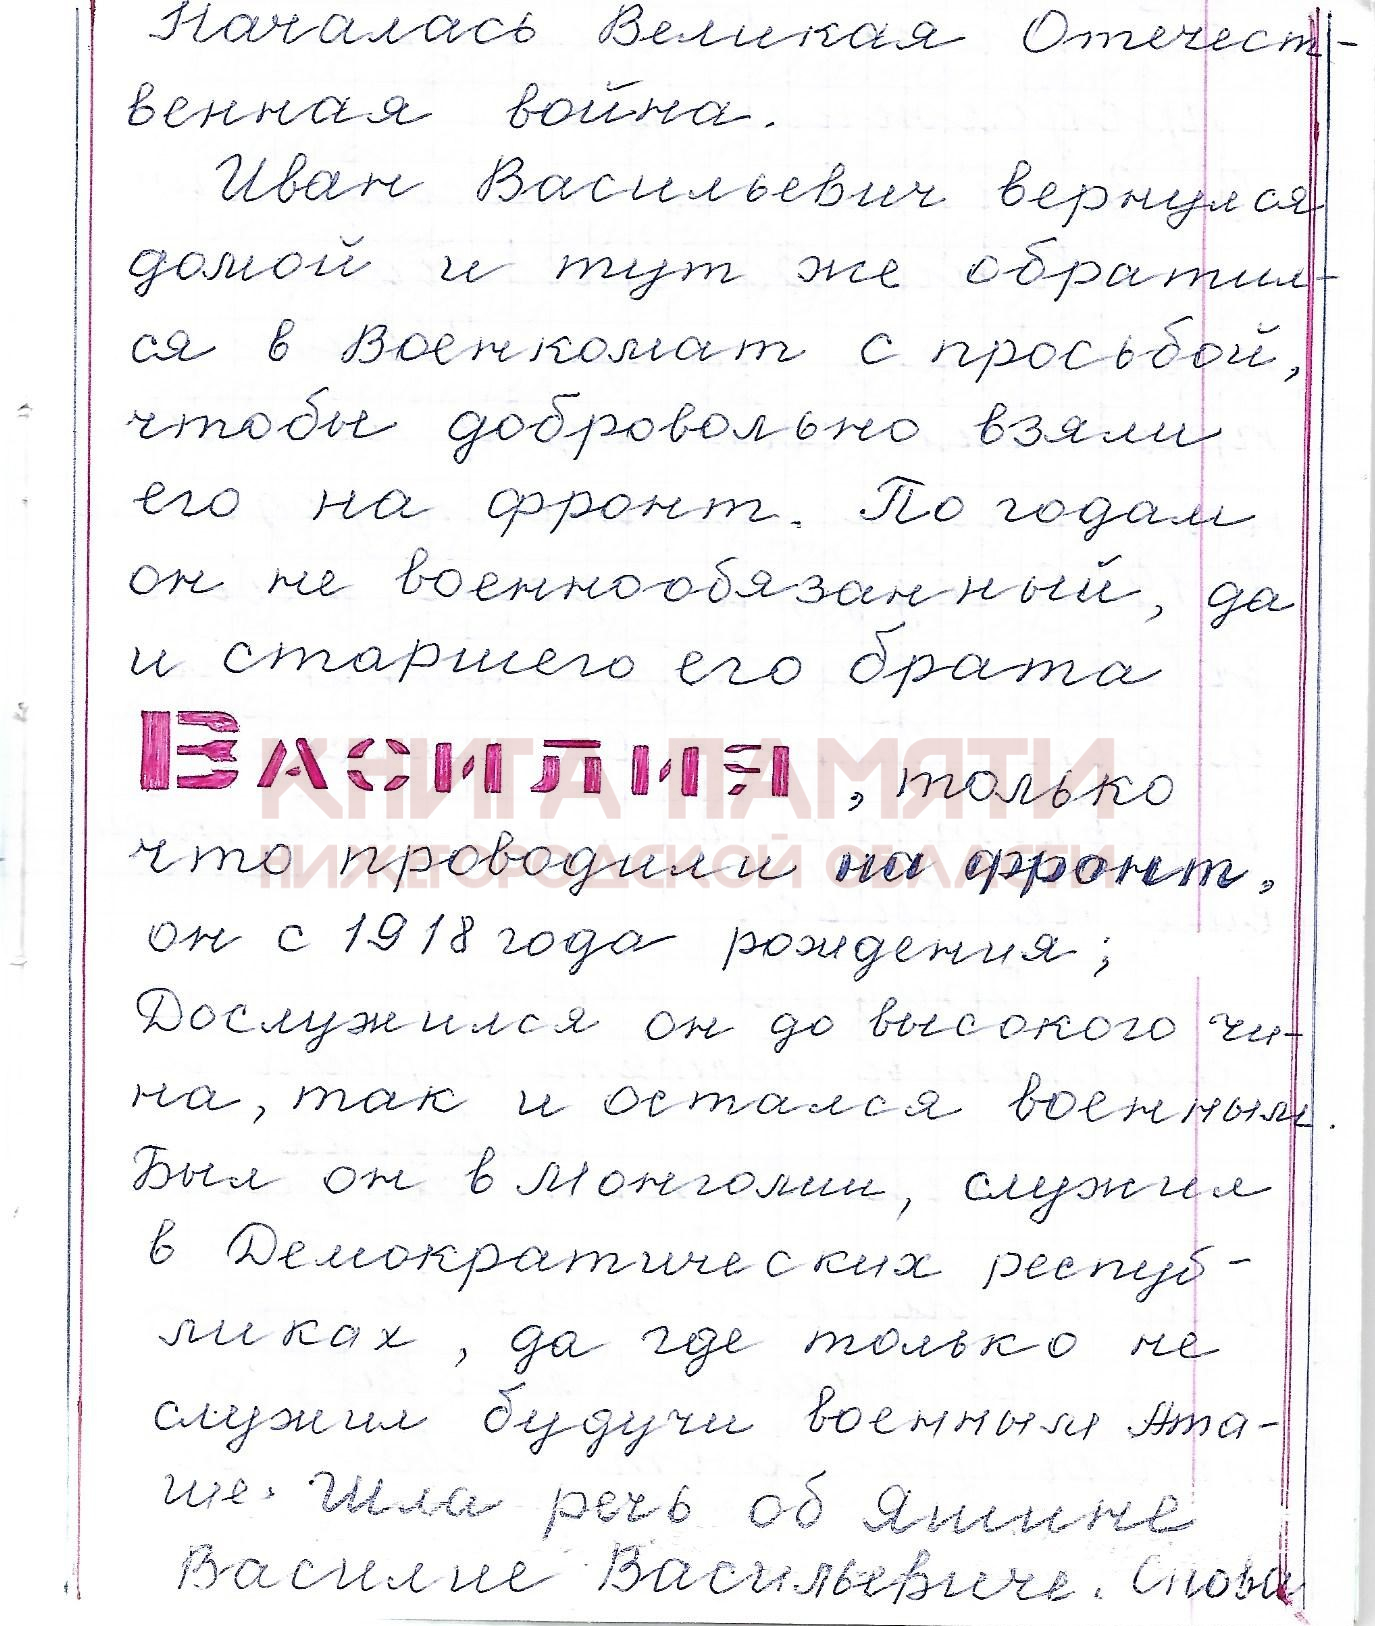 Началась Великая Отечест-
венная война.
Иван Васильевич вернулся
домой и тут же обратил-
ся в Военкомат с просьбой,
чтобы добровольно взяли
его на фронт. По годам
он не военнообязанный, да
и старшего его брата
Василия, только
КНИГА ПАМЯТИ
что проводили на фронт,
НИЖЕГОРОДСКОЙ ОБЛАСТИ
он с 1918 года рождения;
Дослужился он до высокого чи-
на, так и остался военным.
Был он в Монголии, служил
в Демократических респуб-
ликах, да где только не
служил будучи военным Ата-
ше. Шла речь об Яшине
Василие Васильевиче. Снова